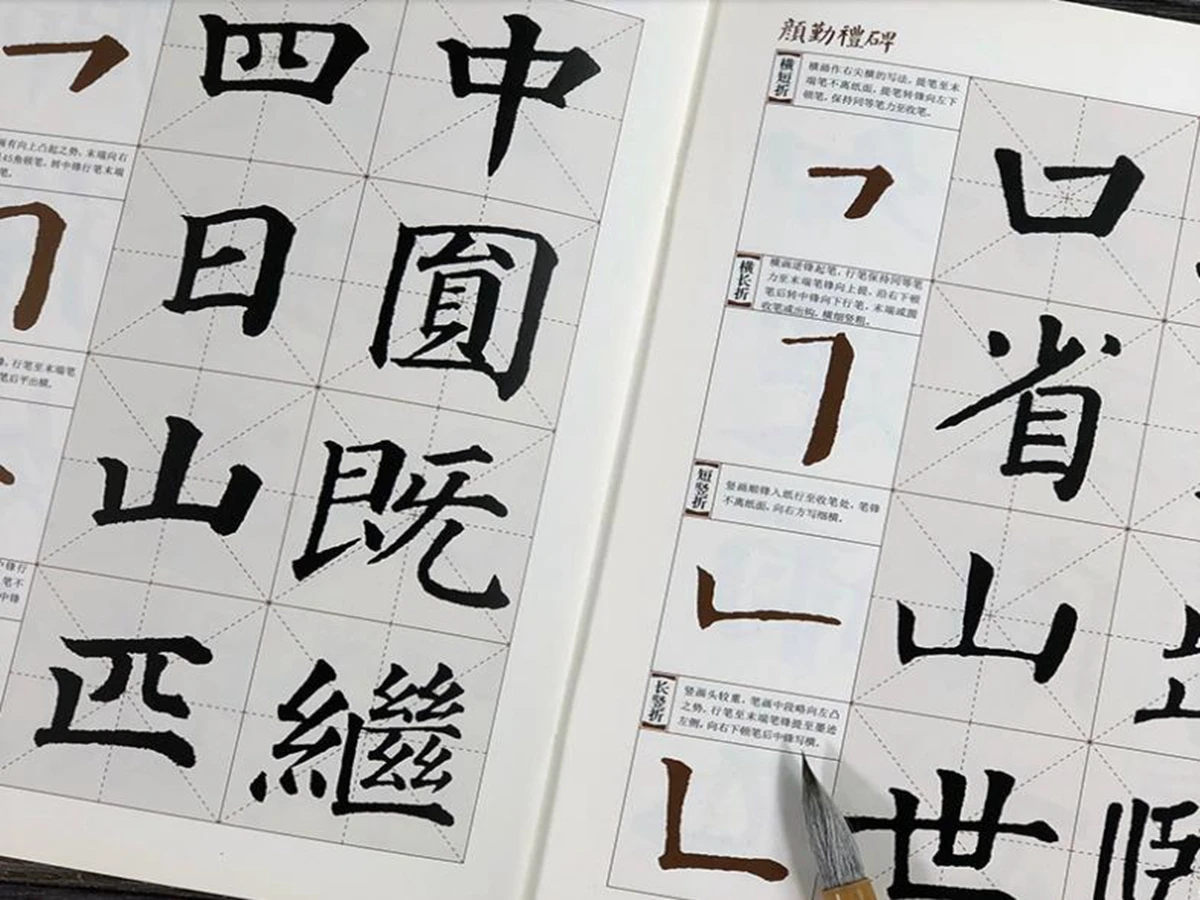 四 中
画有向上凸起之势，末端向右
45角顿笔，转中锋行笔末端
笔。
日 圎
行笔至末端笔
笔后平出横。
山 既
匹 繼
顔勤禮碑
横短折
横画作右尖横的写法，提笔至末
端笔不离纸面，提笔转锋向左下
顿笔，保持同等笔力至收笔。
口
横长折
横画逆锋起笔，行笔保持同等笔
力至末端笔锋向上提，沿右下顿
笔后转中锋向下行笔，末端或圆
收笔或出钩，横细竖粗。
省
短竖折
竖画顺锋入纸行至收笔处，笔锋
不离纸面，向右方写细横。
山
长竖折
竖画头较重，笔画中段略向左凸
之势，行笔至末端笔锋提至墨迹
左侧，向右下顿笔后中锋写横。
世